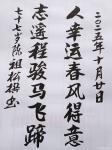 二〇二五年十月廿日
人幸运春风得意
志遥程骏马飞蹄
七十七岁陈祖松书